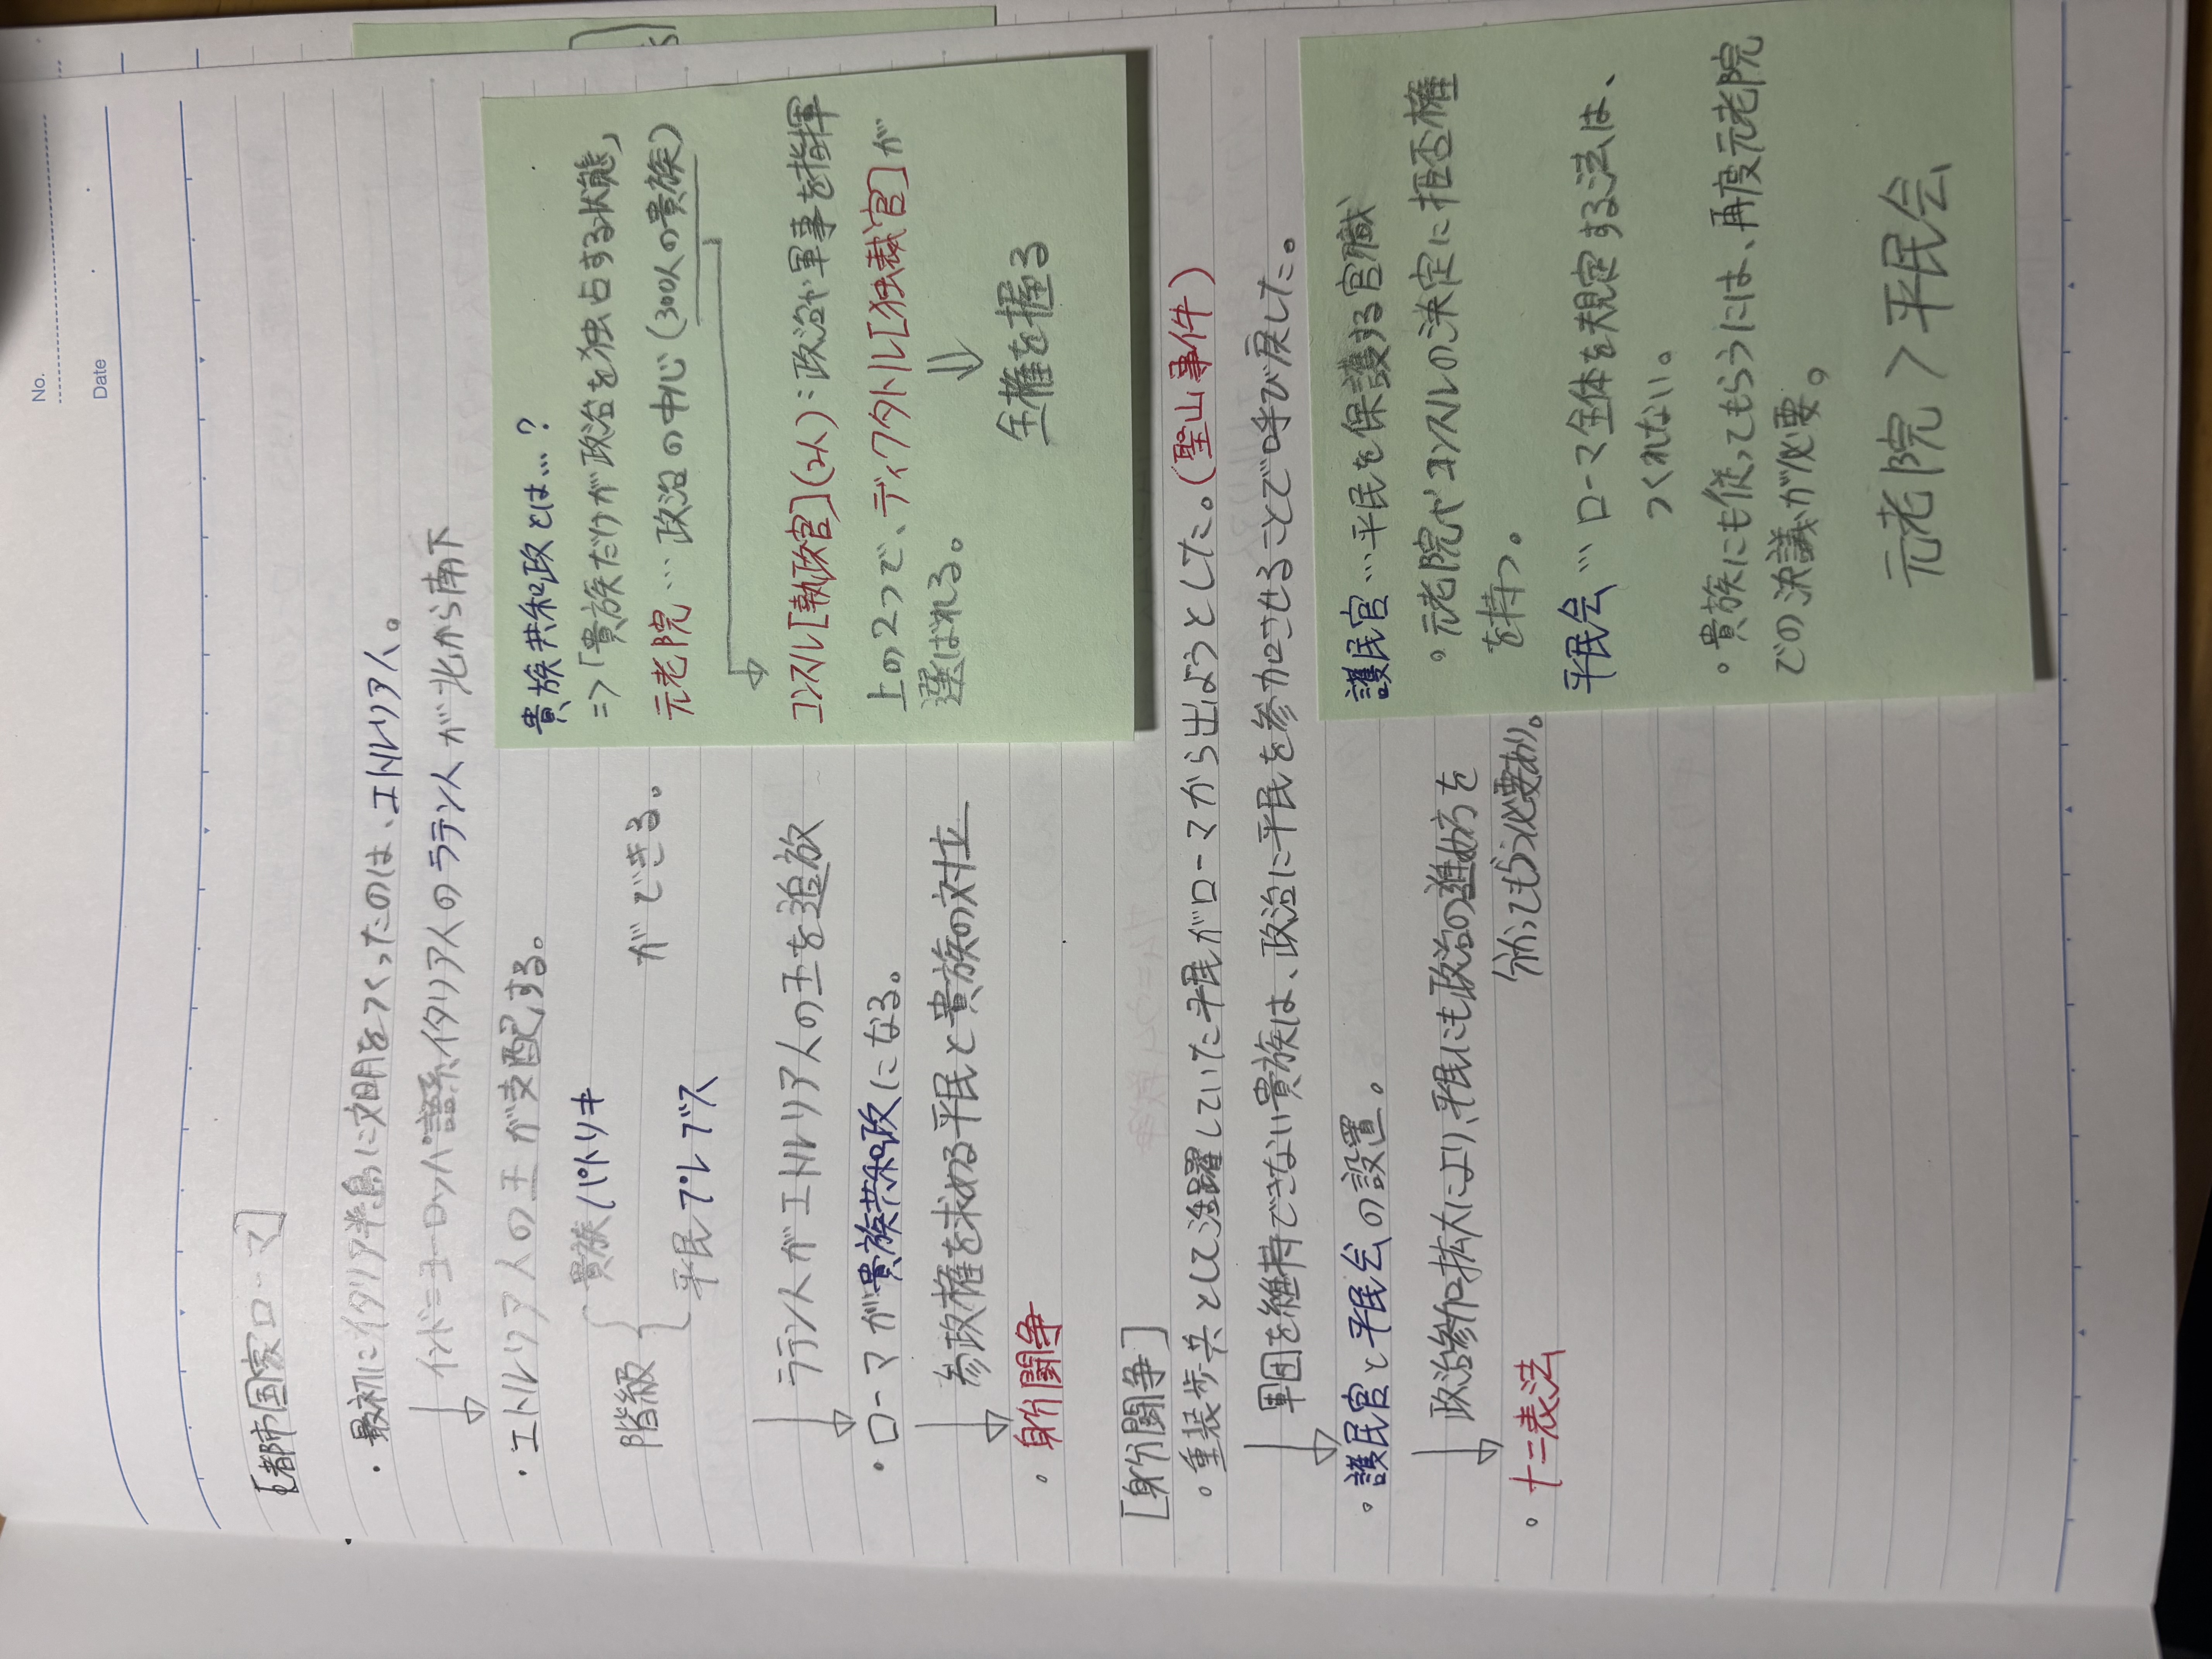 No.
Date
[都市国家ローマ]
・最初にイタリア半島に文明をつくったのは、エトルリア人。
インド=ヨーロッパ語系イタリア人のラテン人が北から南下
・エトルリア人の王が支配する。
階級 { 貴族 パトリキ
平民 プレブス
ができる。
ラテン人がエトルリア人の王を追放
・ローマが貴族共和政になる。
参政権を求める平民と貴族の対立
・身分闘争
貴族共和政とは…?
=>「貴族だけが政治を独占する状態」
元老院…政治の中心(300人の貴族)
コンスル[執政官](2人):政治や軍事を指揮
上の2つで、ディクタトル[独裁官]が
選ばれる。
⇓
全権を握る
[身分闘争]
・重装歩兵として活躍していた平民がローマから出ようとした。(聖山事件)
軍団を維持できない貴族は、政治に平民を参加させることで呼び戻した。
・護民官と平民会の設置。
政治参加拡大により、平民にも政治の進め方を
分かってもらう必要あり。
・十二表法
護民官…平民を保護する官職
・元老院やコンスルの決定に拒否権
を持つ。
平民会…ローマ全体を規定する法は、
つくれない。
・貴族にも従ってもらうには、再度元老院
での決議が必要。
元老院>平民会